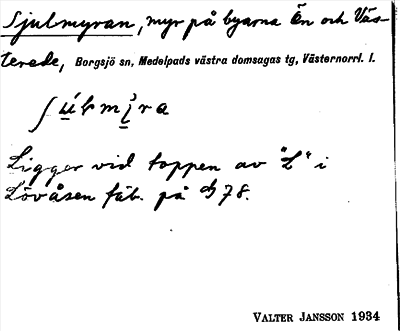 Sjulmyran, myr på byarna Ån och Väs-
terede, Borgsjö sn, Medelpads västra domsagas tg, Västernorrl. l.
Ligger vid toppen av "L" i
Lövåsen fäb. på 78.
VALTER JANSSON 1934